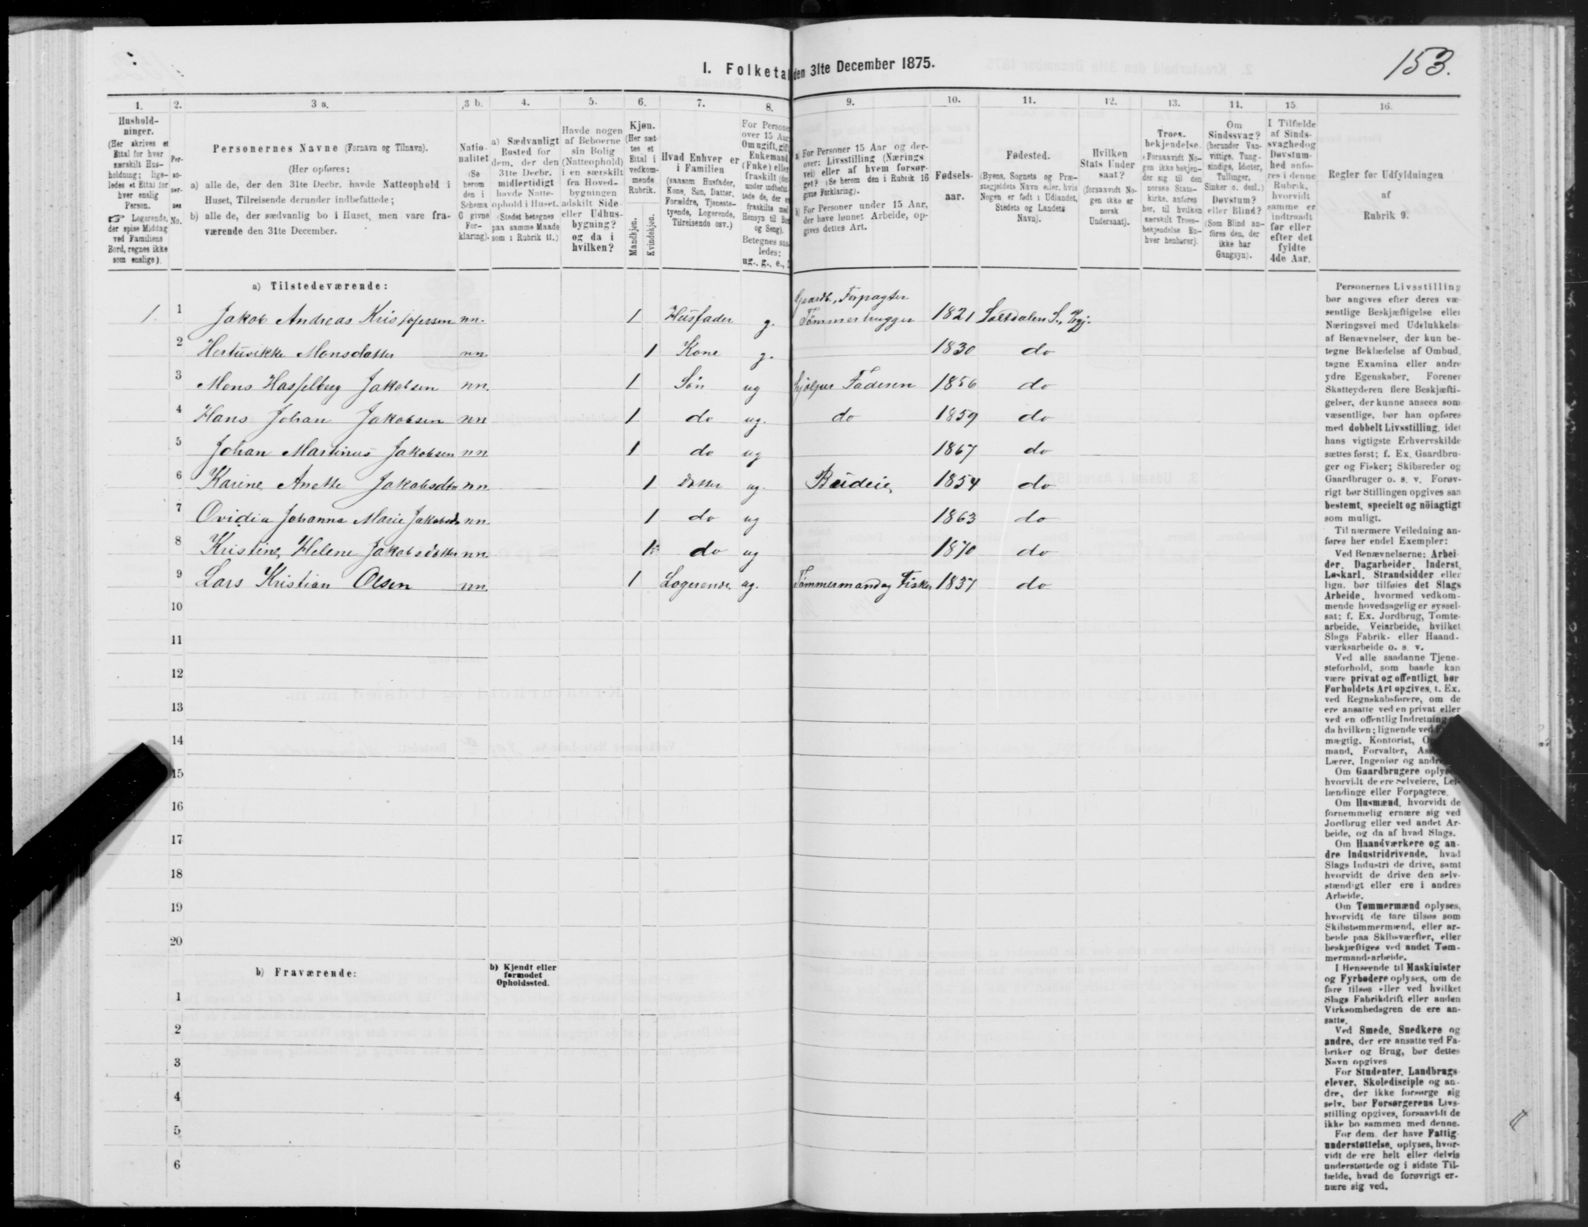 153.
I. Folketal den 31te December 1875.
1. 2. 3 a. 3 b. 4. 5. 6. 7. 8. 9. 10. 11. 12. 13. 14. 15. 16.
Hushold-
ninger.
(Her skrives et
Ettal for hver
særskilt Hus-
holdning; lige-
ledes et Ettal for
hver enslig
Person.
☞ Logerende,
der spise Middag
ved Familiens
Bord, regnes ikke
som enslige).
Per-
so-
ner-
nes
No.
Personernes Navne (Fornavn og Tilnavn).
(Her opføres:
a) alle de, der den 31te Decbr. havde Natteophold i
Huset, Tilreisende derunder indbefattede;
b) alle de, der sædvanlig bo i Huset, men vare fra-
værende den 31te December.
Natio-
nalitet
(Se
herom
den i
Schema
C givne
For-
klaring).
a) Sædvanligt
Bosted for
dem, der den
31te Decbr.
midlertidigt
havde Natte-
ophold i Huset.
(Stedet betegnes
paa samme Maade
som i Rubrik 11.)
Havde nogen
af Beboerne
sin Bolig
(Natteophold)
i en særskilt
fra Hoved-
bygningen
adskilt Side-
eller Udhus-
bygning?
og da i
hvilken?
Kjøn.
(Her sæt-
tes et
Ettal i
vedkom-
mende
Rubrik.
Mandkjøn.
Kvindekjøn.
Hvad Enhver er
i Familien
(saasom Husfader,
Kone, Søn, Datter,
Forældre, Tjeneste-
tyende, Logerende,
Tilreisende osv.)
For Personer
over 15 Aar:
Om ugift, gift,
Enkemand
(Enke) eller
fraskilt
Betegnes saa-
ledes:
ug., g., e.,
a) For Personer 15 Aar og der-
over: Livsstilling (Nærings-
vei) eller af hvem forsør-
get? (Se herom den i Rubrik 16
givne Forklaring).
b) For Personer under 15 Aar,
der have lønnet Arbeide, op-
gives dettes Art.
Fødsels-
aar.
Fødested.
(Byens, Sognets og Præ-
stegjeldets Navn eller, hvis
Nogen er født i Udlandet,
Stedets og Landets
Navn).
Hvilken
Stats Under-
saat?
(forsaavidt No-
gen ikke er
norsk
Undersaat).
Troes-
bekjendelse.
(Forsaavidt No-
gen ikke bekjen-
der sig til den
norske Stats-
kirke, anføres
her, til hvilken
særskilt Troes-
bekjendelse En-
hver henhører).
Om
Sindssvag?
(herunder Van-
vittige, Tung-
sindige, Idioter,
Tullinger,
Sinker o. desl.)
Døvstum?
eller Blind?
(Som Blind an-
føres den, der
ikke har
Gangsyn).
I Tilfælde
af Sinds-
svaghed og
Døvstum-
hed anfø-
res i denne
Rubrik,
hvorvidt
samme er
indtraadt
før eller
efter det
fyldte
4de Aar.
Regler før Udfyldningen
af
Rubrik 9.
a) Tilstedeværende:
Gaardb., Forpagter
1. 1 Jakob Andreas Kristofersen nn. 1 Husfader g. Tømmerhugger 1821 Saltdalen S. Prgj.
2 Hertuvikke Monsdatter nn. 1 Kone g. 1830 do
3 Mons Hasselberg Jakobsen nn. 1 Søn ug hjælper Faderen 1856 do
4 Hans Johan Jakobsen nn 1 do ug. do 1859 do
5 Johan Martinus Jakobsen nn 1 do ug 1867 do
6 Karine Anette Jakobsdtr nn. 1 Datter ug. Budeie 1854 do
7 Ovidia Johanna Marie Jakobsd. nn. 1 do ug 1863 do
8 Kristine Helene Jakobsdatter nn. 1 do ug 1870 do
9 Lars Kristian Olsen nn. 1 Logerende ug. Tømmermand og Fisker 1837 do
10
11
12
13
14
15
16
17
18
19
20
b) Fraværende:
b) Kjendt eller
formodet
Opholdssted.
1
2
3
4
5
6
Personernes Livsstilling
bør angives efter deres væ-
sentlige Beskjæftigelse eller
Næringsvei med Udelukkelse
af Benævnelser, der kun be-
tegne Beklædelse af Ombud,
tagne Examina eller andre
ydre Egenskaber. Forener
Skatteyderen flere Beskjæfti-
gelser, der kunne ansees som
væsentlige, bør han opføres
med dobbelt Livsstilling, idet
hans vigtigste Erhvervskilde
sættes først; f. Ex. Gaardbru-
ger og Fisker; Skibsreder og
Gaardbruger o. s. v. Forøv-
rigt bør Stillingen opgives saa
bestemt, specielt og nøiagtigt
som muligt.
Til nærmere Veiledning an-
føres her endel Exempler:
Ved Benævnelserne: Arbei-
der, Dagarbeider, Inderst,
Løskarl, Strandsidder eller
lign. bør tilføies det Slags
Arbeide, hvormed vedkom-
mende hovedsagelig er syssel-
sat; f. Ex. Jordbrug, Tomte-
arbeide, Veiarbeide, hvilket
Slags Fabrik- eller Haand-
værksarbeide o. s. v.
Ved alle saadanne Tjene-
steforhold, som baade kan
være privat og offentligt, bør
Forholdets Art opgives, t. Ex.
ved Regnskabsførere, om de
ere ansatte ved en privat eller
ved en offentlig Indretning
da hvilken; lignende ved
mægtig, Kontorist,
mand, Forvalter,
Lærer, Ingeniør og andre
Om Gaardbrugere oplyses,
hvorvidt de ere Selveiere, Lei-
lændinge eller Forpagtere.
Om Husmænd, hvorvidt de
fornemmelig ernære sig ved
Jordbrug eller ved andet Ar-
beide, og da af hvad Slags.
Om Haandværkere og an-
dre Industridrivende, hvad
Slags Industri de drive, samt
hvorvidt de drive den selv-
stændigt eller ere i andres
Arbeide.
Om Tømmermænd oplyses,
hvorvidt de fare tilsøs som
Skibstømmermænd, eller ar-
beide paa Skibsværfter, eller
beskjæftiges ved andet Tøm-
mermandsarbeide.
I Henseende til Maskinister
og Fyrbødere oplyses, om de
fare tilsøs eller ved hvilket
Slags Fabrikdrift eller anden
Virksombedsgren de ere an-
satte.
Ved Smede, Snedkere og
andre, der ere ansatte ved Fa-
briker og Brug, bør dettes
Navn opgives
For Studenter, Landbrugs-
elever, Skoledisciple og an-
dre, der ikke forsørge sig
selv, bør Forsørgerens Livs-
stilling opgives, forsaavidt de
ikke bo sammen med denne.
For dem, der have Fattig-
understøttelse, oplyses, hvor-
vidt de ere helt eller delvis
understøttede og i sidste Til-
fælde, hvad de forøvrigt er-
nære sig ved.